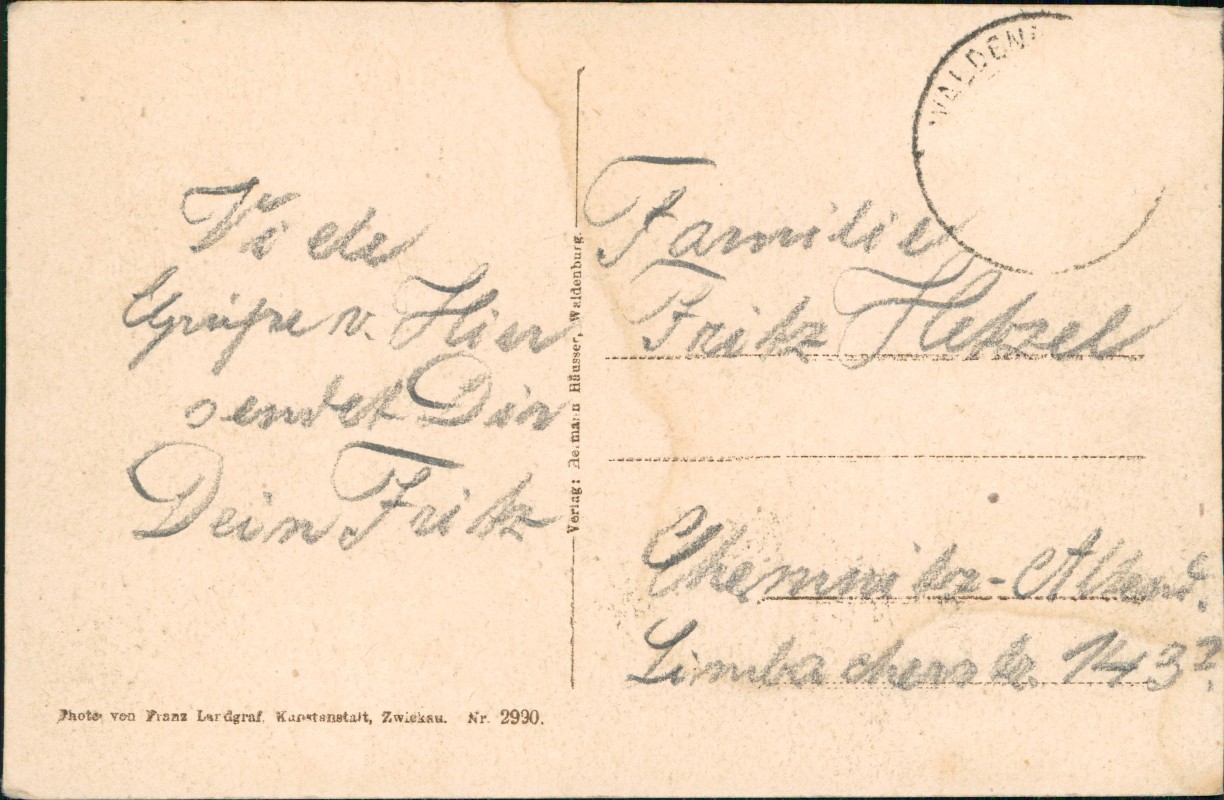 Viele
Grüße v. Hier
sendet Dir
Dein Fritz
Verlag: Hermann Häusser, Waldenburg.
WALDENB
Familie
Fritz Hetzel
Chemnitz-Altend.
Limbacherstr. 143
Photo von Franz Landgraf, Kunstanstalt, Zwickau. Nr. 2990.